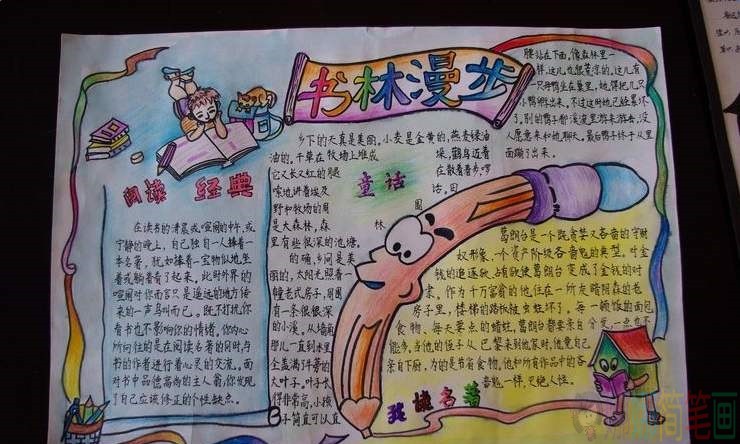 书林漫步
阅读 经典
在读书的清晨或喧闹的中午,或
宁静的晚上,自己独自一人捧着一
本名著,犹如捧着一宝物似地坐
着或躺着看了起来,此时外界的
喧闹对你而言只是遥远的地方传
来的一声鸟叫而已,既不打扰你
看书也不影响你的情绪,你的心
所向往的是在阅读名著的同时与
书的作者进行着心灵的交流。面
对书中品德高尚的主人翁,你发现
了自己应该修正的个性缺点。
童话
乡下的天真是美丽,小麦是金黄的,燕麦绿油
油的。干草在牧场上堆成垛,鹳鸟迈着
它又长又红的腿在散着步,啰
嗦地讲着埃及话。田
野和牧场的周围
是大森林,森林
里有些很深的池塘。
的确,乡间是美
丽的,太阳光照着一
幢老式房子,周围
有一条很很深
的小溪。从墙角
那儿一直到水里
全盖满了牛蒡的
大叶子。叶子长
得非常高,小孩
子简直可以直
腰站在下面。像森林里一
样,这儿也很荒凉的。这儿有
一只母鸭坐在巢里,她得把几只
小鸭孵出来。不过这时她已经累坏
了。别的鸭子都在溪道里游来游去,没
人愿意来和她聊天。最后鸭子终于从里
面蹦了出来。
葛朗台是一个既贪婪又吝啬的守财
奴形象,一个资产阶级吝啬鬼的典型。对金
钱的追逐欲、占有欲使葛朗台变成了金钱的奴
隶。作为十万富翁的他,住在一所灰暗阴森的老
房子里,楼梯的踏板被虫蛀坏了。每一顿饭的面包
食物、每天要点的蜡烛,葛朗台都亲自分发,一点也不
能多。当他的侄子从巴黎来到他家时,他竟自己
亲自下厨,为的是节省食物。他和所有作品中的吝
啬鬼一样,灭绝人性。
我读名著
简笔画